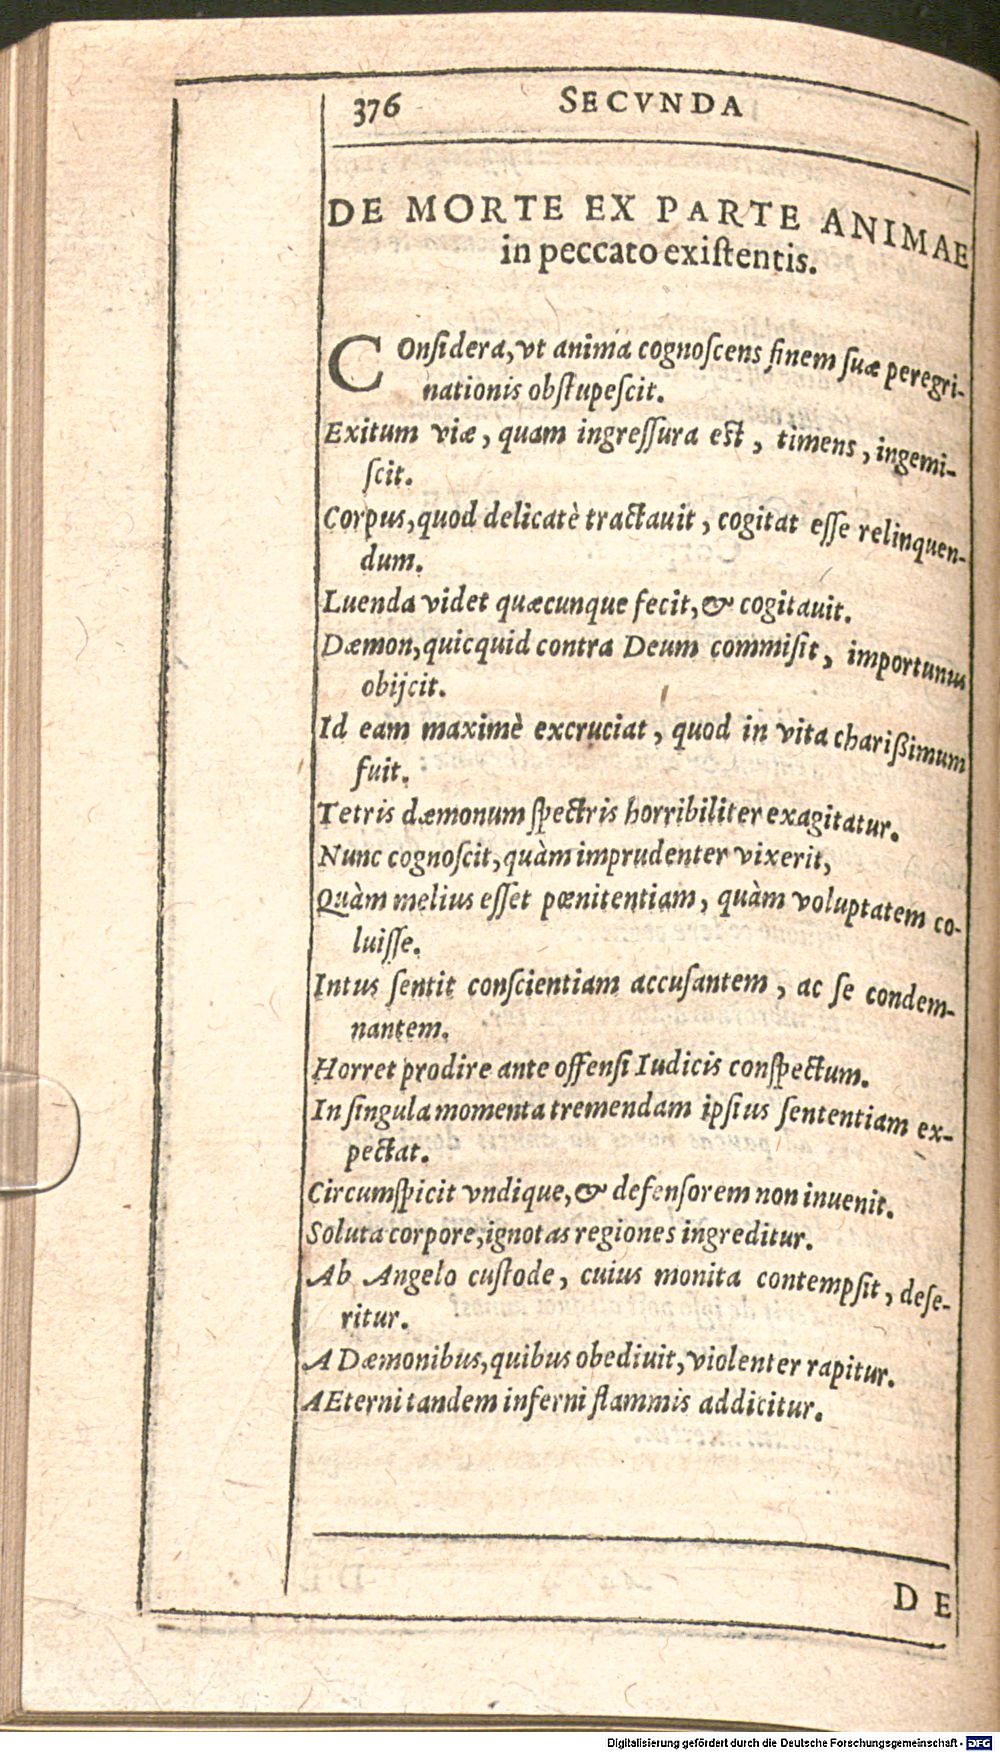 376 SECVNDA
DE MORTE EX PARTE ANIMAE
in peccato existentis.
COnſidera, vt anima cognoſcens finem ſuæ peregri-
nationis obſtupeſcit.
Exitum viæ, quam ingreſſura eſt, timens, ingemi-
ſcit.
Corpus, quod delicatè tractauit, cogitat eſſe relinquen-
dum.
Luenda videt quæcunque fecit, & cogitauit.
Dæmon, quicquid contra Deum commiſit, importunus
obijcit.
Id eam maximè excruciat, quod in vita charißimum
fuit.
Tetris dæmonum ſpectris horribiliter exagitatur.
Nunc cognoſcit, quàm imprudenter vixerit,
Quàm melius eſſet pœnitentiam, quàm voluptatem co-
luiſſe.
Intus ſentit conſcientiam accuſantem, ac ſe condem-
nantem.
Horret prodire ante offenſi Iudicis conſpectum.
In ſingula momenta tremendam ipſius ſententiam ex-
pectat.
Circumſpicit vndique, & defenſorem non inuenit.
Soluta corpore, ignotas regiones ingreditur.
Ab Angelo cuſtode, cuius monita contempſit, deſe-
ritur.
A Dæmonibus, quibus obediuit, violenter rapitur.
AEterni tandem inferni flammis addicitur.
DE
Digitalisierung gefördert durch die Deutsche Forschungsgemeinschaft - DFG